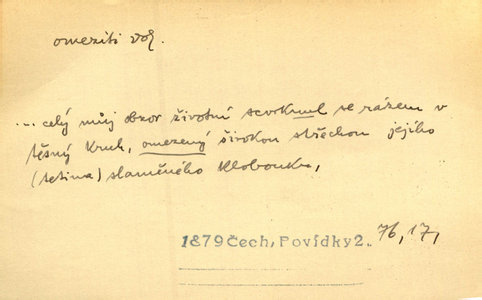 omeziti dok.
... celý můj obzor životní scvrknul se rázem v
těsný kruh, omezený širokou střechou jejího
(tetina) slaměného klobouku,
1879 Čech, Povídky 2. 76, 17,